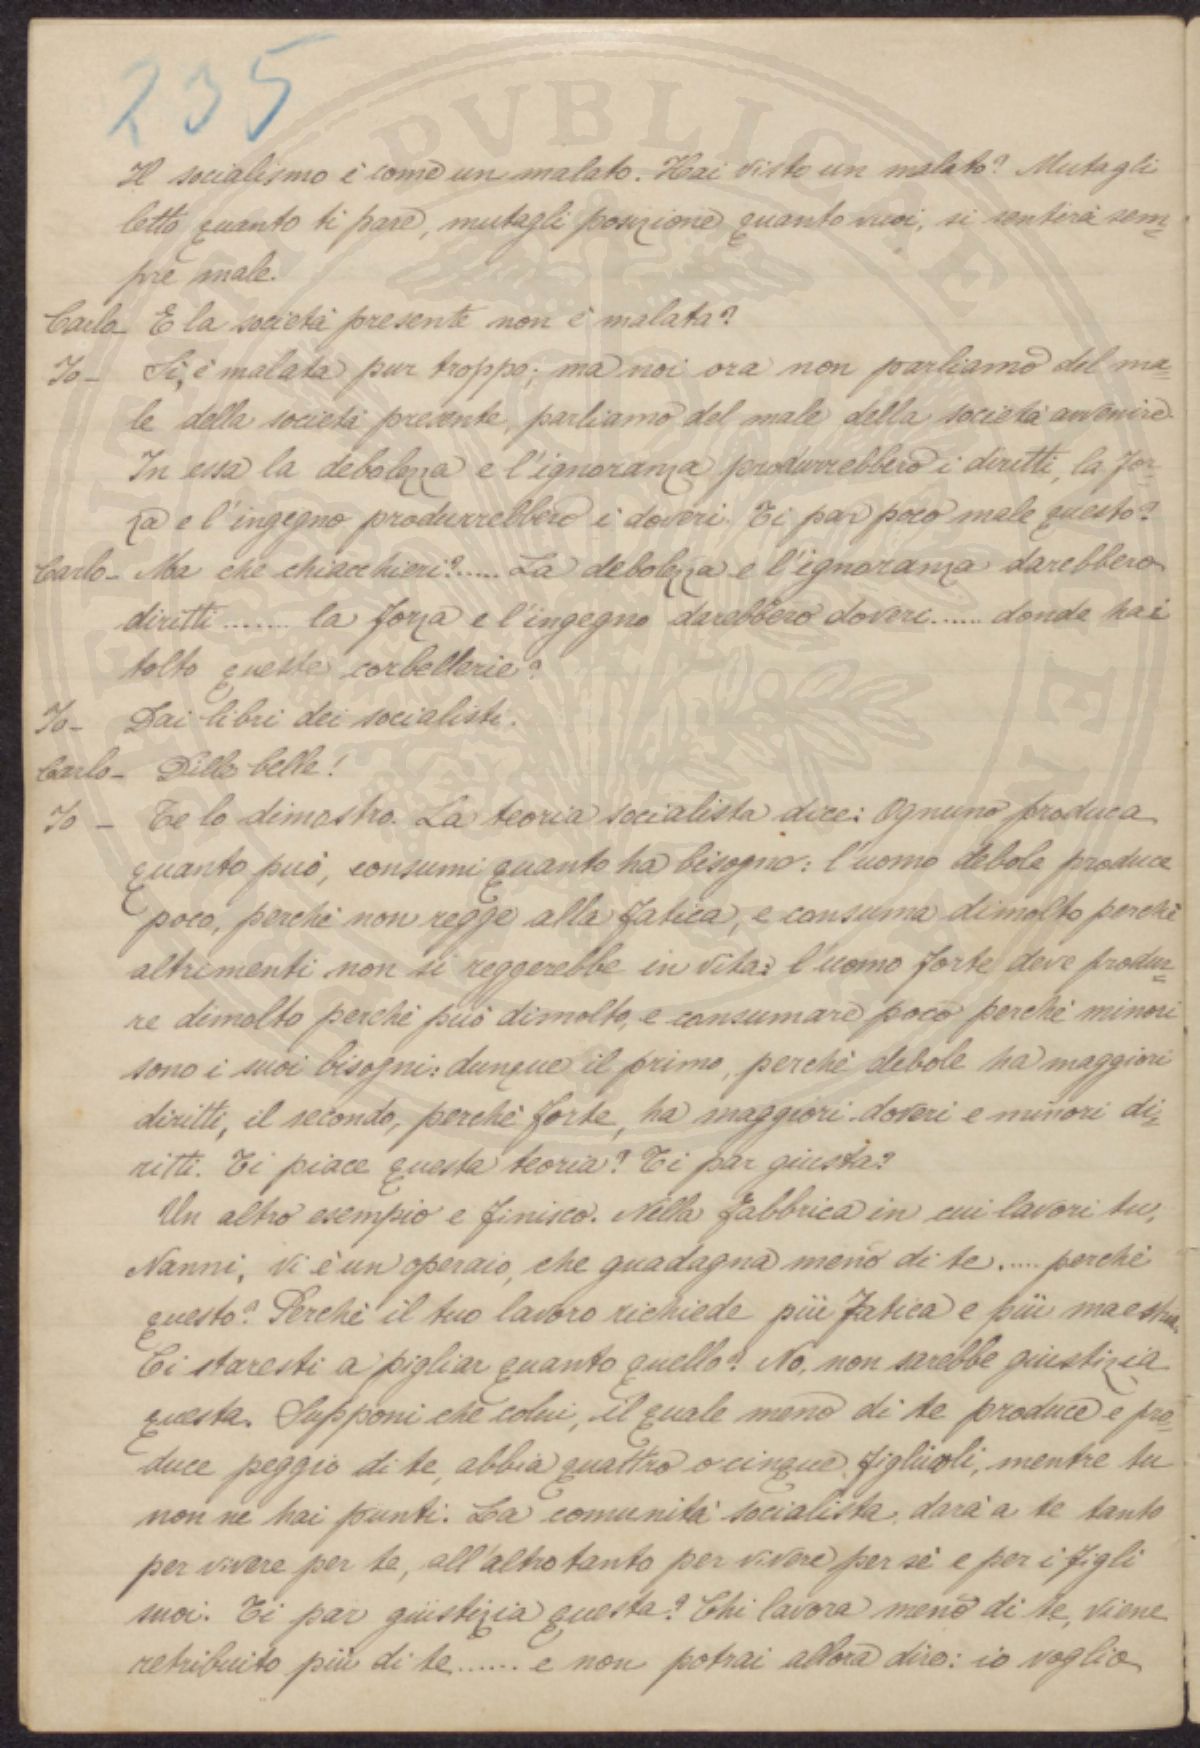 235
Il socialismo è come un malato. Hai visto un malato? Mutagli
letto quanto ti pare, mutagli posizione quanto vuoi, si sentirà sem=
pre male.
Carlo - E la società presente non è malata?
Io - Sì, è malata pur troppo; ma noi ora non parliamo del ma=
le della società presente, parliamo del male della società avvenire.
In essa la debolezza e l'ignoranza produrrebbero i diritti, la for=
za e l'ingegno produrrebbero i doveri. Ti par poco male questo?
Carlo - Ma che chiacchieri?..... La debolezza e l'ignoranza darebbero
diritti ........ la forza e l'ingegno darebbero doveri ...... donde hai
tolto queste corbellerie?
Io - Dai libri dei socialisti.
Carlo - Dille belle!
Io - Te lo dimostro. La teoria socialista dice: Ognuno produca
quanto può, consumi quanto ha bisogno: l'uomo debole produce
poco, perchè non regge alla fatica, e consuma dimolto perchè
altrimenti non si reggerebbe in vita: l'uomo forte deve produr=
re dimolto perchè può dimolto, e consumare poco perchè minori
sono i suoi bisogni: dunque il primo, perchè debole ha maggiori
diritti, il secondo, perchè forte, ha maggiori doveri e minori di=
ritti. Ti piace questa teoria? Ti par giusta?
Un altro esempio e finisco. Nella fabbrica in cui lavori tu,
Nanni, vi è un operaio, che guadagna meno di te ..... perchè
questo? Perchè il tuo lavoro richiede più fatica e più maestria.
Ci staresti a pigliar quanto quello? No, non sarebbe giustizia
questa. Supponi che colui, il quale meno di te produce e pro=
duce peggio di te, abbia quattro o cinque figliuoli, mentre tu
non ne hai punti. La comunità socialista, darà a te tanto
per vivere per te, all'altro tanto per vivere per sè e per i figli
suoi. Ti par giustizia questa? Chi lavora meno di te, viene
retribuito più di te ...... e non potrai allora dire: io voglio